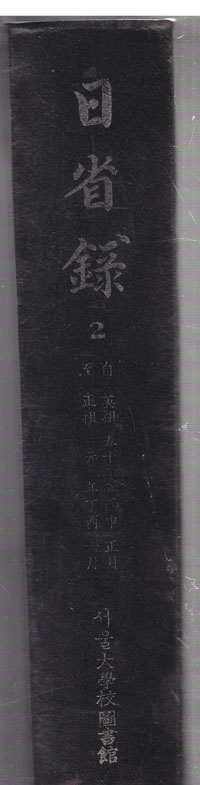 日省錄
2
自 英祖 五十 申 正月
至 正祖 元 年丁酉 月
서울大學校圖書館